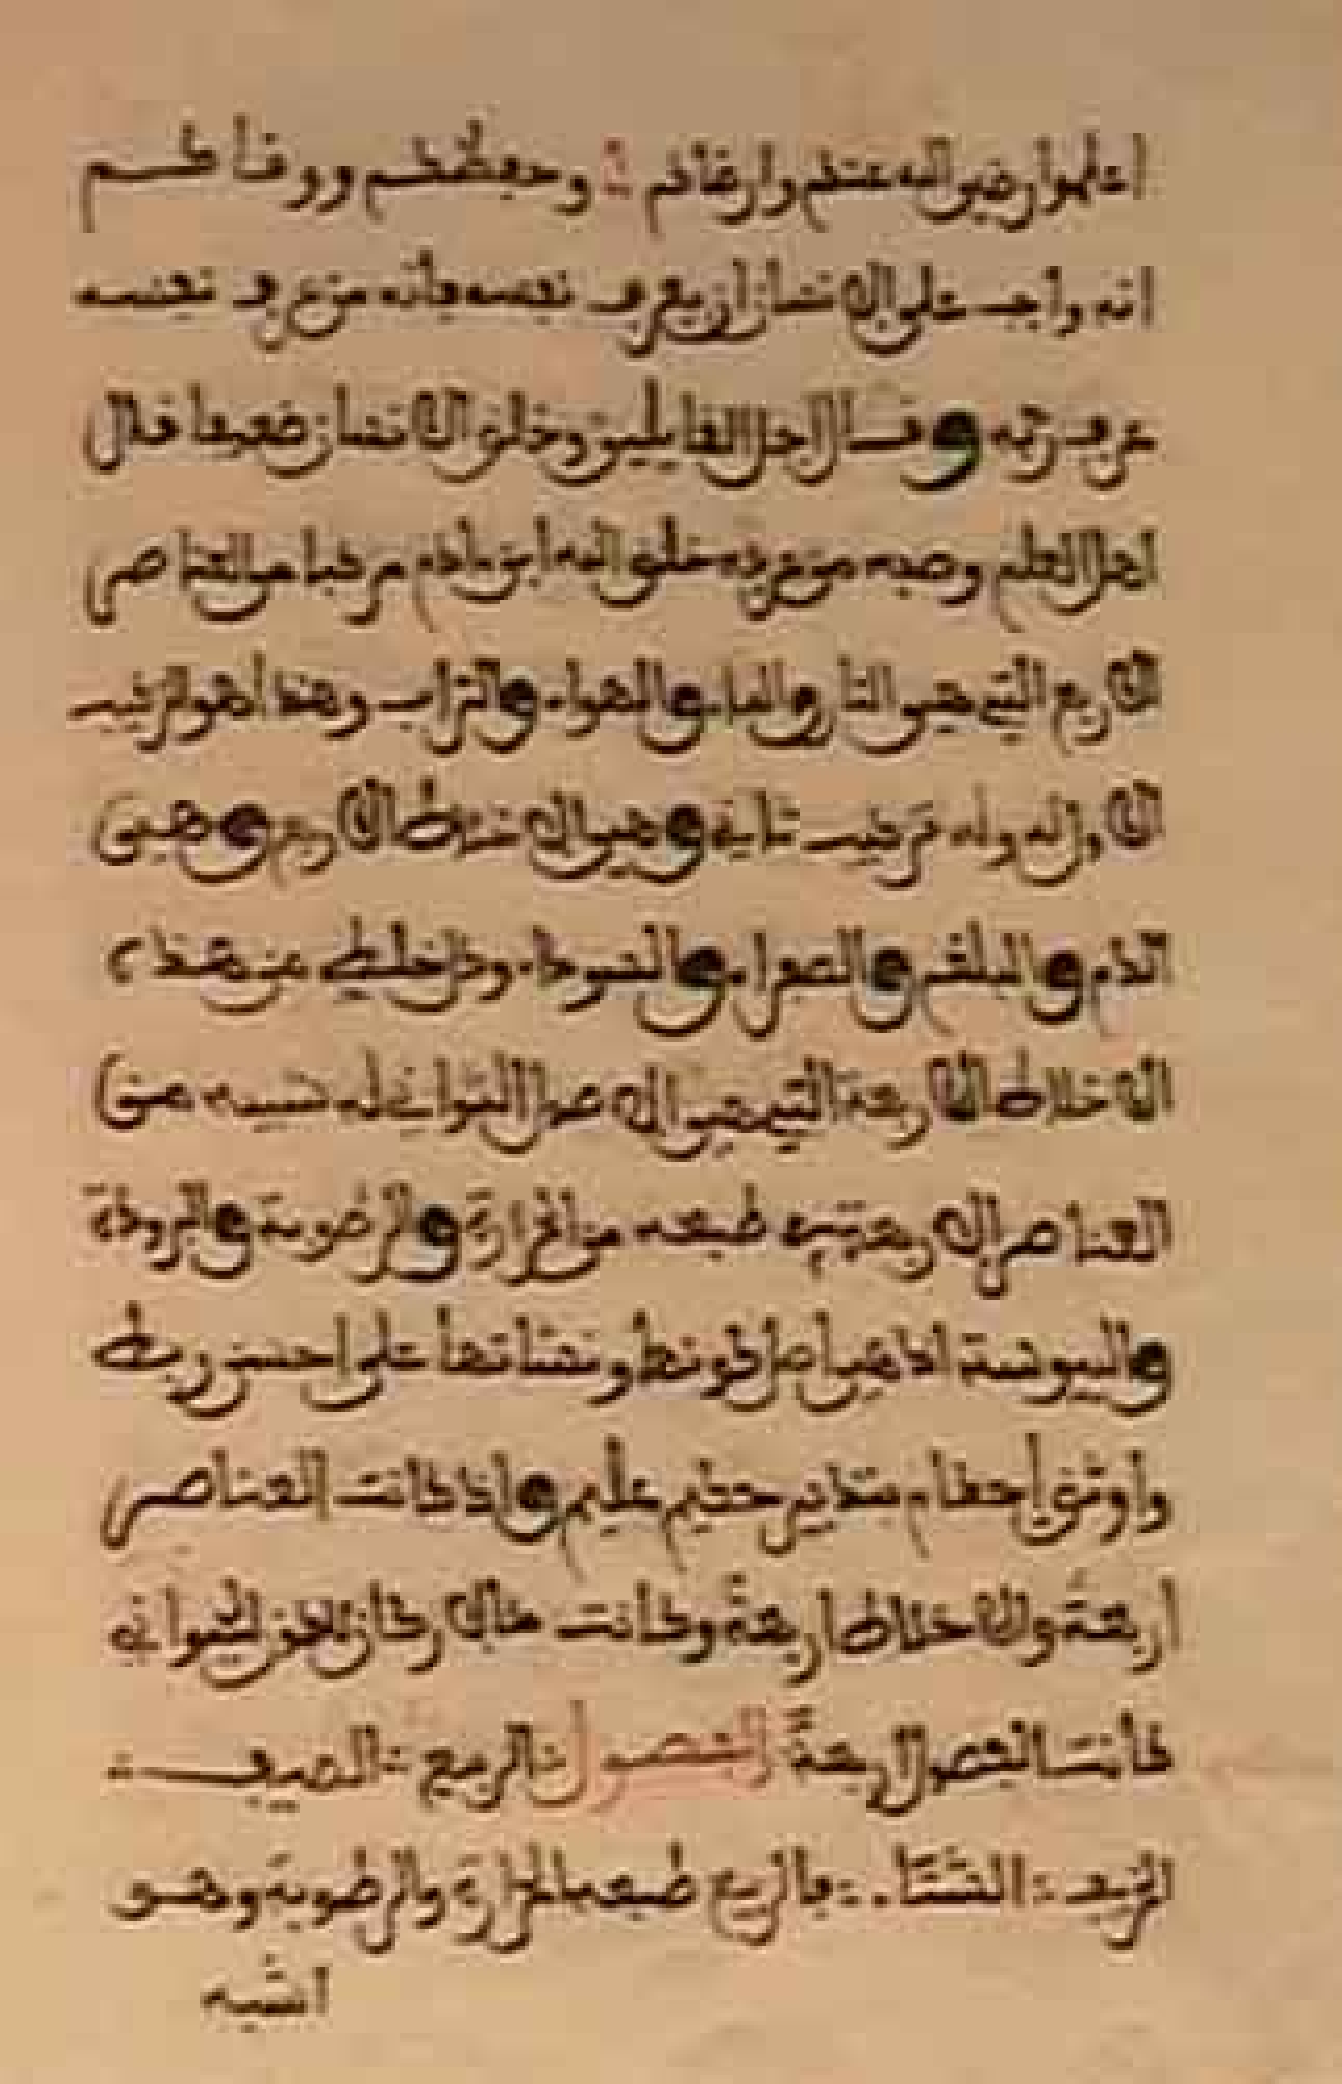 اعلموا رضي الله عنكم وارضاكم وحفظكم ووقاكم
انه واجب على الانسان ان يعرف نفسه فانه من عرف نفسه
عرف ربه وقال اجل القايلين وخلق الانسان ضعيفا قال
اهل العلم ومن خلق الله ابن ءادم مركبا من العناصر
الاربع التي هي النار والماء والهواء والتراب وهذا هو التركيب
الاول له وله تركيب ثاني وهي الاخلاط الاربع وهي
الدم والبلغم والصفراء والسوداء وكل خلط من هذه
الاخلاط الاربعة التي هي الاصل الثواني له نسبة من
العناصر الاربعة في طبعه من الحرارة والرطوبة والبرودة
واليبوسة اذ هي اصل كونها ونشاتها على احسن ربط
واوثق احكام بتدبير حكيم عليم واذا كانت العناصر
اربعة والاخلاط اربعة وكانت الاركان الحيواني
كانت الفصول اربعة الفصول الربيع الصيف
الخريف الشتاء فالربيع طبعه الحرارة والرطوبة وهو
اشبه